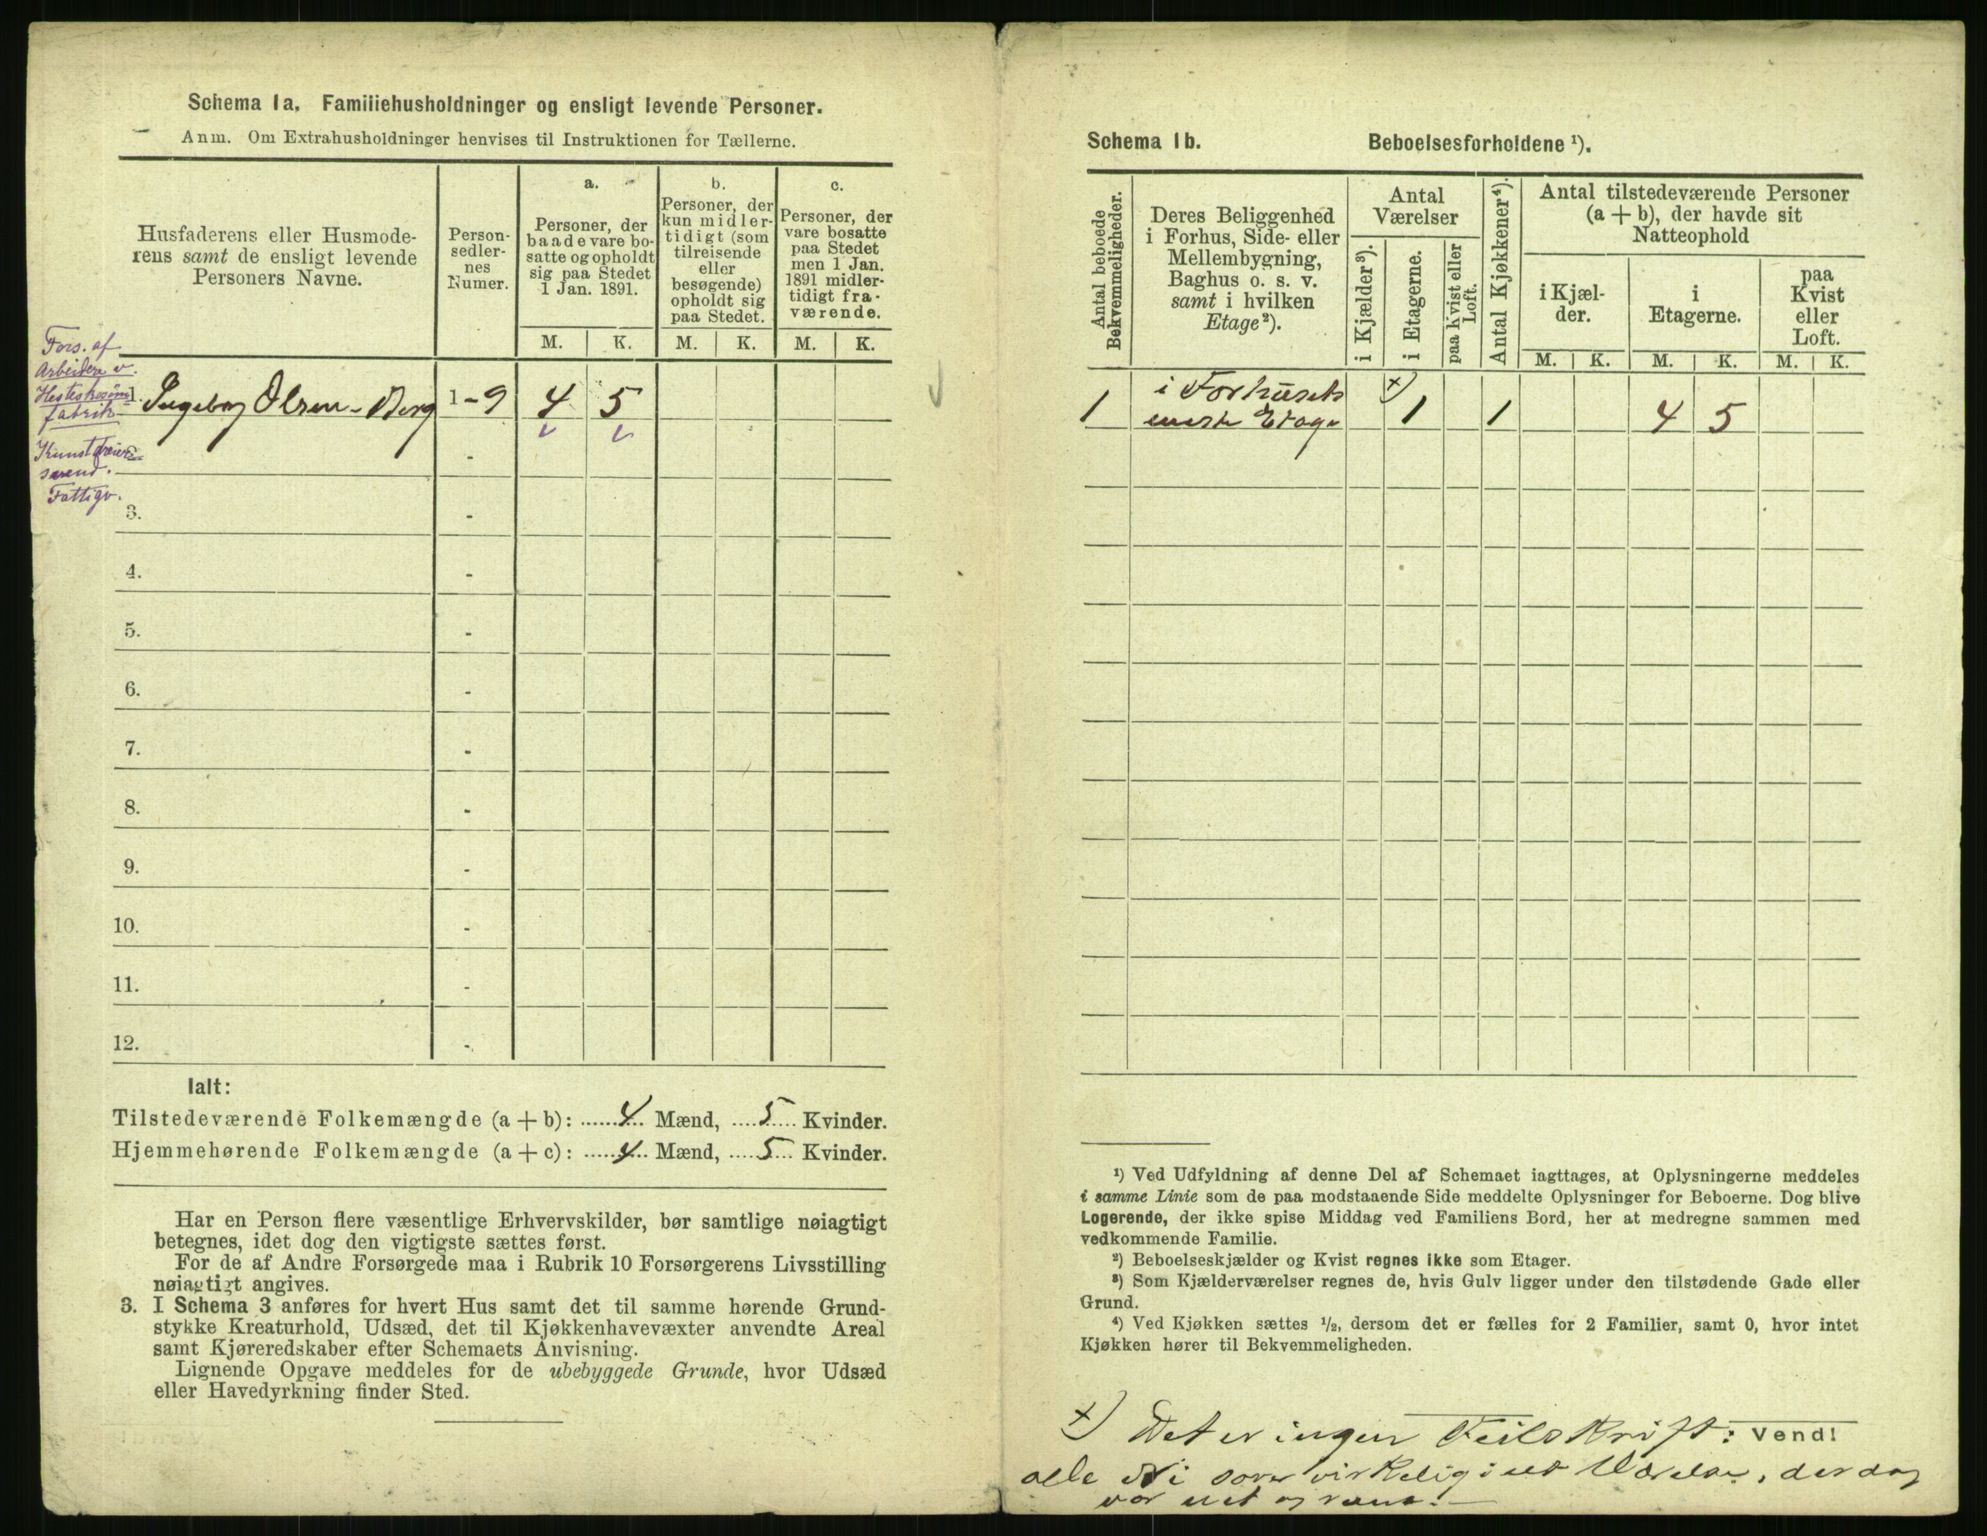 Schema 1a. Familiehusholdninger og ensligt levende Personer.
Anm. Om Extrahusholdninger henvises til Instruktionen for Tællerne.
Husfaderens eller Husmode-
rens samt de ensligt levende
Personers Navne.
Person-
sedler-
nes
Numer.
a.
Personer, der
baade vare bo-
satte og opholdt
sig paa Stedet
1 Jan. 1891.
b.
Personer, der
kun midler-
tidigt (som
tilreisende
eller
besøgende)
opholdt sig
paa Stedet.
c.
Personer, der
vare bosatte
paa Stedet
men 1 Jan.
1891 midler-
tidigt fra-
værende.
M. K. M. K. M. K.
Fors. af
Arbeidere v.
Hesteskosøm
fabrik
1. Ingeborg Olsen-Berg 1-9 4 5
Fattigv.
3. -
4. -
5. -
6. -
7. -
8. -
9. -
10. -
11. -
12. -
Ialt:
Tilstedeværende Folkemængde (a + b): 4 Mænd, 5 Kvinder.
Hjemmehørende Folkemængde (a + c): 4 Mænd, 5 Kvinder.
Har en Person flere væsentlige Erhvervskilder, bør samtlige nøiagtigt
betegnes, idet dog den vigtigste sættes først.
For de af Andre Forsørgede maa i Rubrik 10 Forsørgerens Livsstilling
nøiagtigt angives.
3. I Schema 3 anføres for hvert Hus samt det til samme hørende Grund-
stykke Kreaturhold, Udsæd, det til Kjøkkenhavevæxter anvendte Areal
samt Kjøreredskaber efter Schemaets Anvisning.
Lignende Opgave meddeles for de ubebyggede Grunde, hvor Udsæd
eller Havedyrkning finder Sted.
Schema 1b. Beboelsesforholdene ¹).
Antal beboede
Bekvemmeligheder.
Deres Beliggenhed
i Forhus, Side- eller
Mellembygning,
Baghus o. s. v.
samt i hvilken
Etage ²).
Antal
Værelser
i Kjælder ³).
i Etagerne.
paa Kvist eller
Loft.
Antal Kjøkkener ⁴).
Antal tilstedeværende Personer
(a + b), der havde sit
Natteophold
i Kjæl-
der.
i
Etagerne.
paa
Kvist
eller
Loft.
M. K. M. K. M. K.
1 i Forhusets
eneste Etage x) 1 1 4 5
¹) Ved Udfyldning af denne Del af Schemaet iagttages, at Oplysningerne meddeles
i samme Linie som de paa modstaaende Side meddelte Oplysninger for Beboerne. Dog blive
Logerende, der ikke spise Middag ved Familiens Bord, her at medregne sammen med
vedkommende Familie.
²) Beboelseskjælder og Kvist regnes ikke som Etager.
³) Som Kjælderværelser regnes de, hvis Gulv ligger under den tilstødende Gade eller
Grund.
⁴) Ved Kjøkken sættes ½, dersom det er fælles for 2 Familier, samt 0, hvor intet
Kjøkken hører til Bekvemmeligheden.
Vend!
x) Det er ingen Feilskrift:
alle Ni sover virkelig i eet Værelse, der dog
var net og rent.